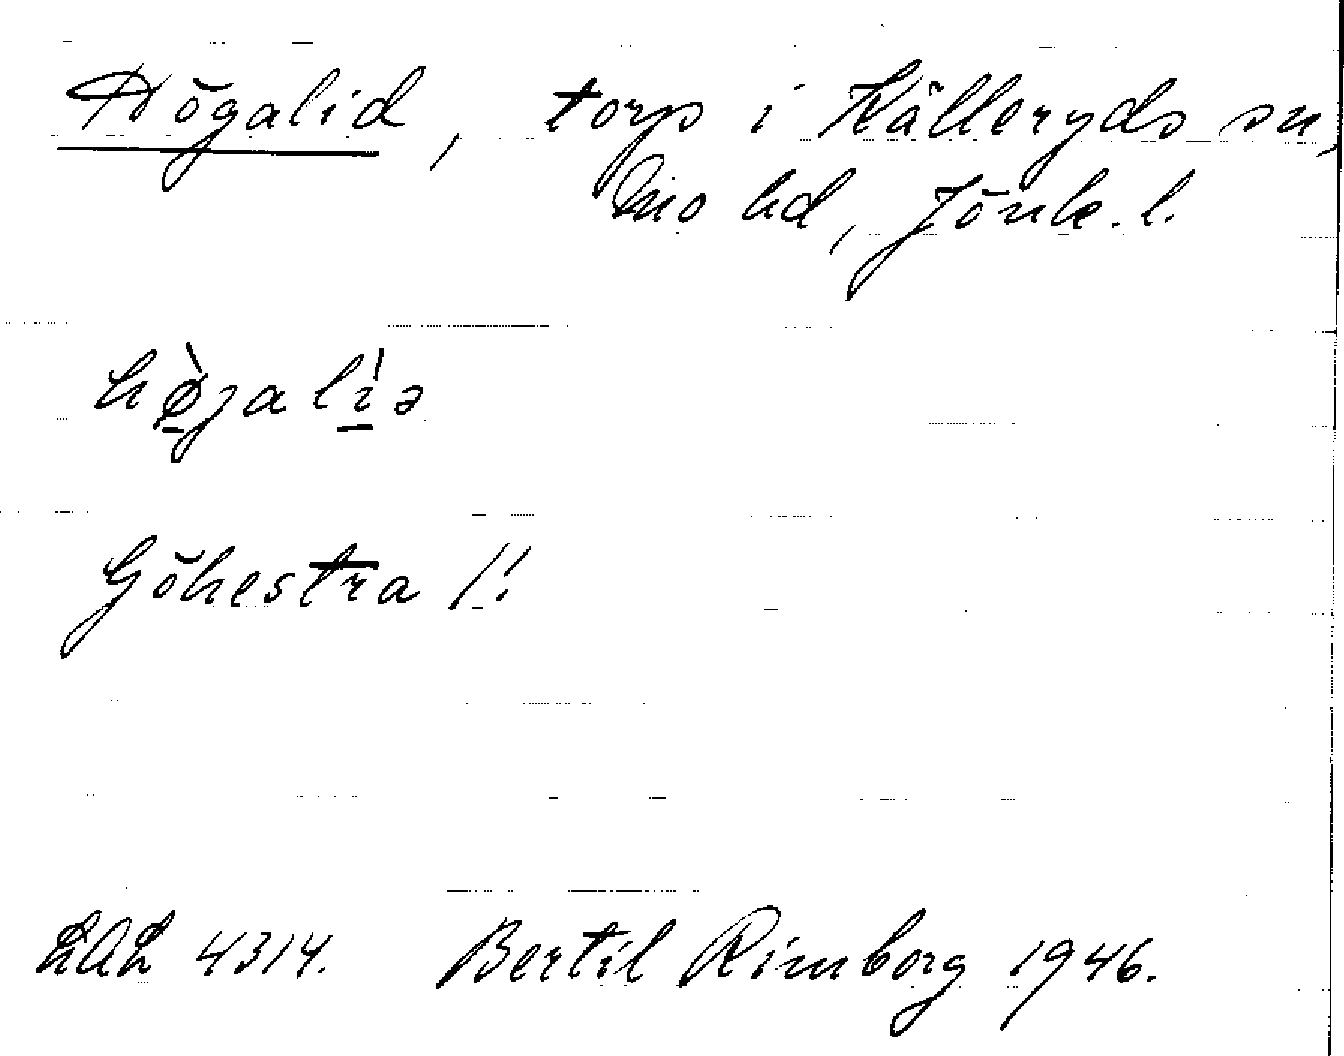 Högalid, torp i Källeryds sn,
Mo hd, Jönk. l.
hø̀jalíə
Gökestra /!
LAL 4314. Bertil Rimborg 1946.